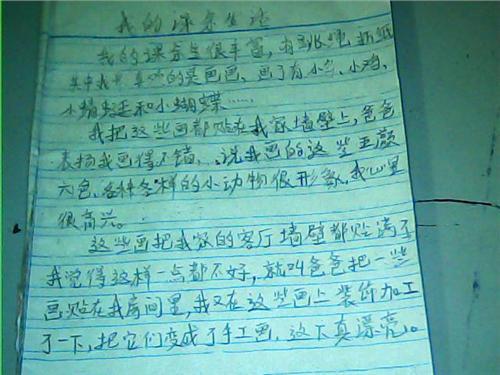 我的课余生活
我的课余生很丰富，有跳绳、折纸
其中我最喜欢的是画画，画了有小鸟、小鸡、
小蜻蜓和小蝴蝶……
我把这些画都贴在我家墙壁上，爸爸
表扬我画得不错，说我画的这些五颜
六色、各种各样的小动物很形象，我心里
很高兴。
这些画把我家的客厅墙壁都贴满了
我觉得这样一点都不好，就叫爸爸把一些
画贴在我房间里，我又在这些画上装饰加工
了一下，把它们变成了手工画，这下真漂亮。